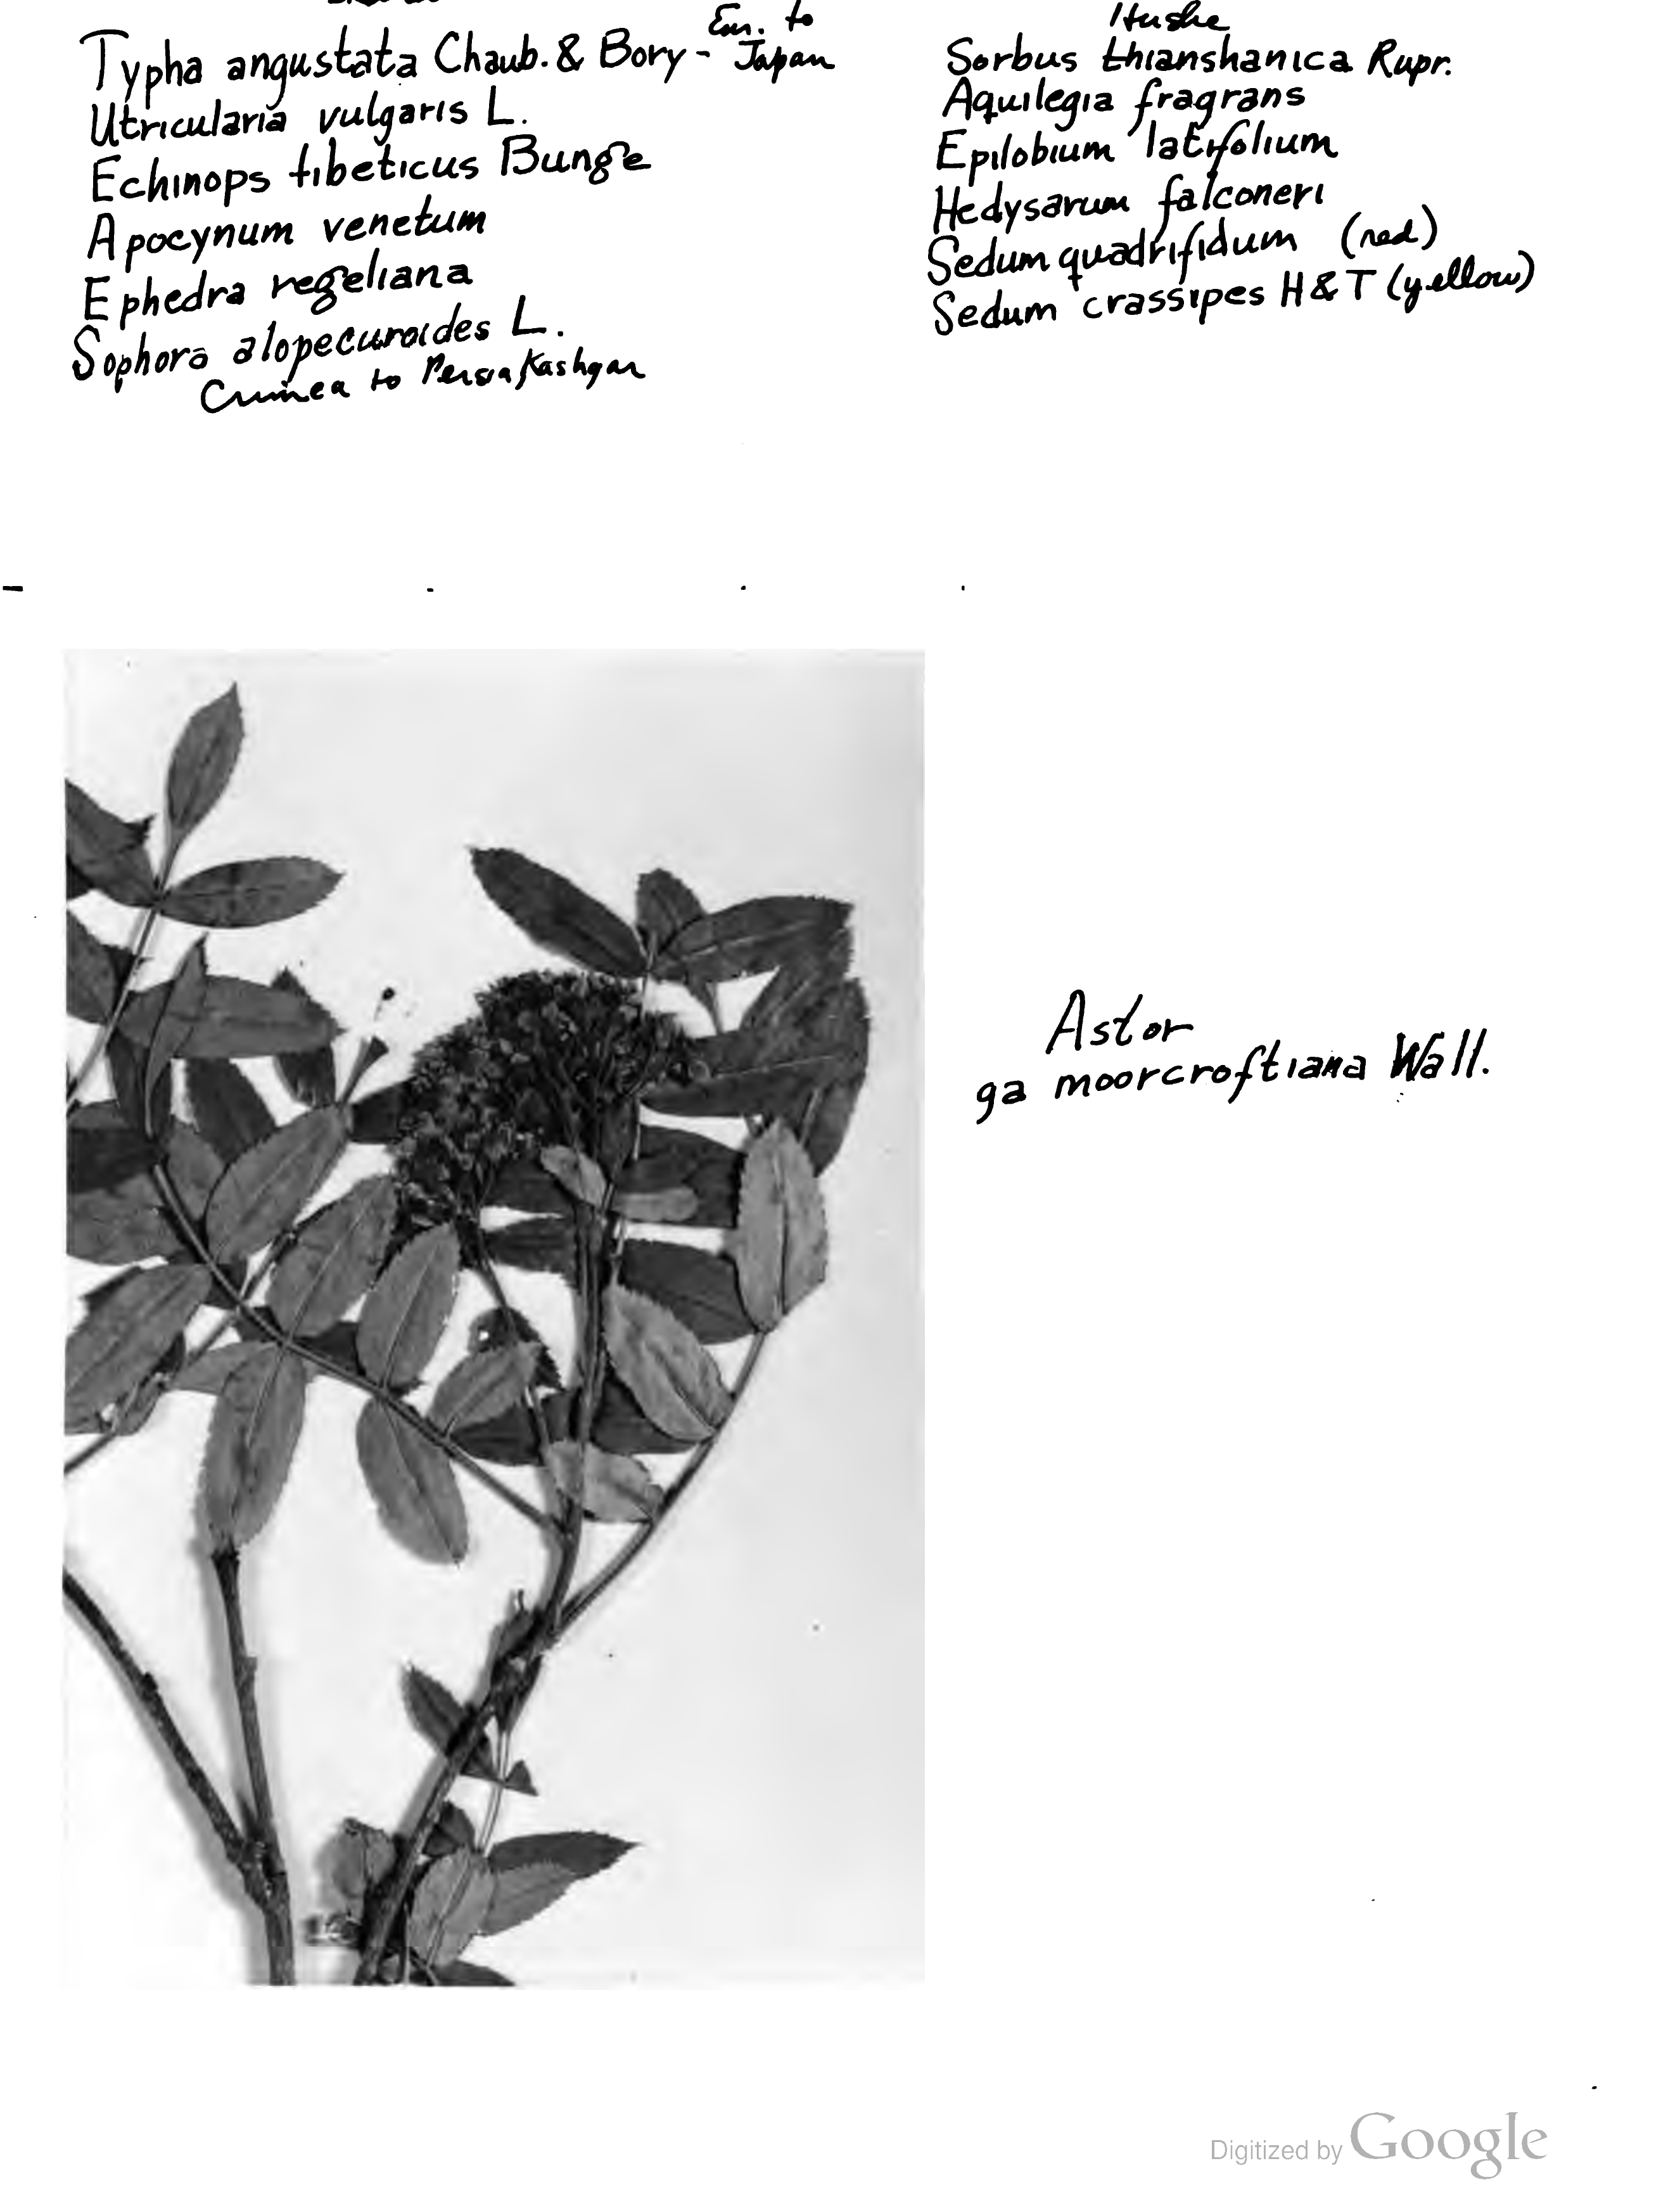 Typha angustata Chaub. & Bory - Eur. to Japan
Utricularia vulgaris L.
Echinops tibeticus Bunge
Apocynum venetum
Ephedra regeliana
Sophora alopecuroides L.
Crimea to Persia, Kashgar
Hushe
Sorbus thianshanica Rupr.
Aquilegia fragrans
Epilobium latifolium
Hedysarum falconeri
Sedum quadrifidum (red)
Sedum crassipes H & T (yellow)
Astor
ga moorcroftiana Wall.
Digitized by Google